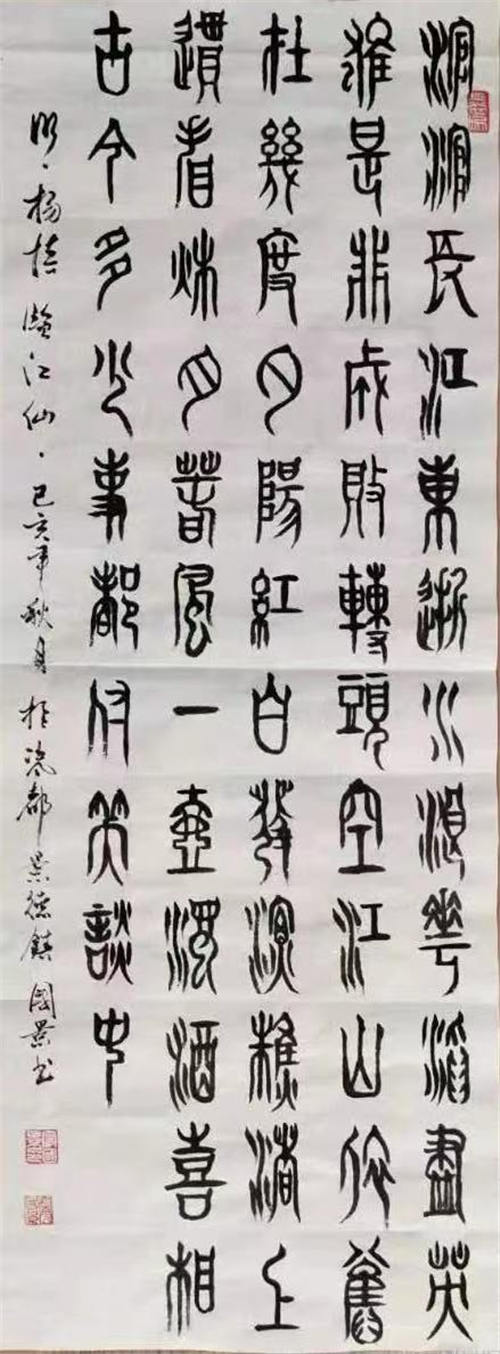 滾滾長江東逝水浪花淘盡英
雄是非成敗轉頭空江山依舊
在幾度夕陽紅白髮漁樵渚上
遦看秋月春風一壺濁酒喜相
古今多少事都付笑談中
明·楊慎臨江仙·己亥年秋月於瓷都景德鎮國景書